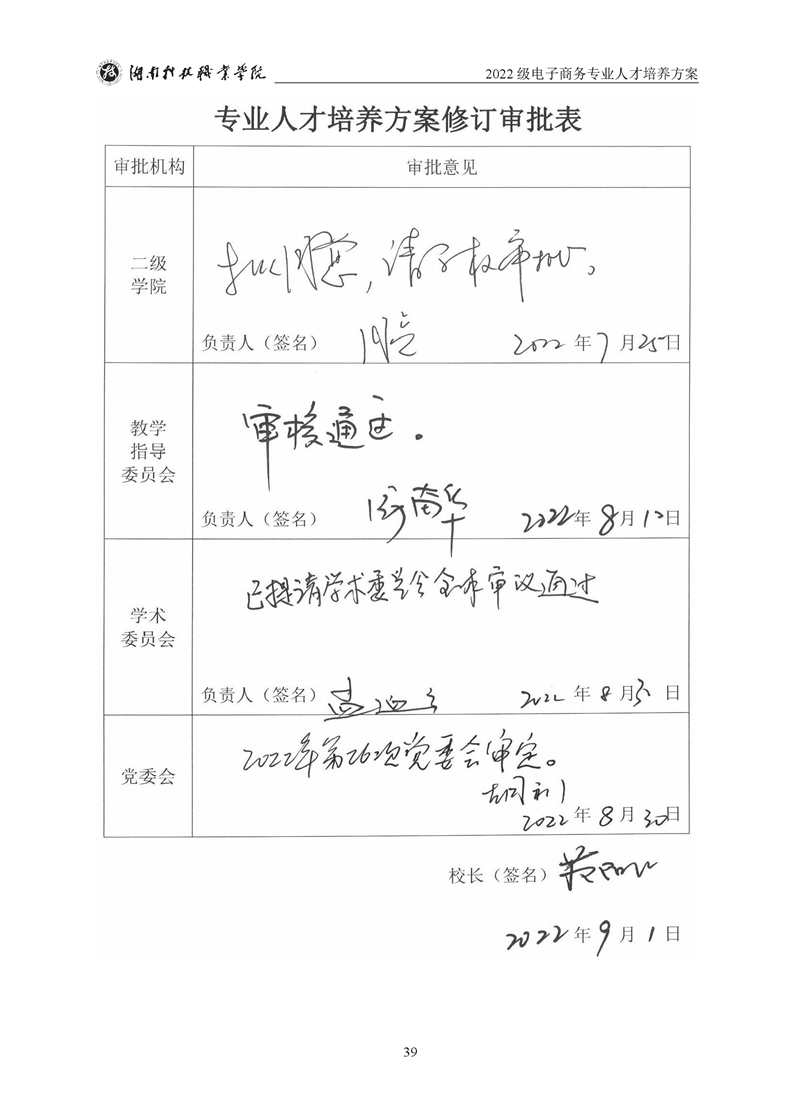 湖南科技职业学院
2022 级电子商务专业人才培养方案
专业人才培养方案修订审批表
审批机构
审批意见
二级
学院
拟同意,请学校审批。
负责人(签名)
2022 年 7 月 25 日
教学
指导
委员会
审核通过。
负责人(签名)
2022 年 8 月 10 日
学术
委员会
已提请学术委员会全体审议通过
负责人(签名)
2022 年 8 月 日
党委会
2022年第26次党委会审定。
2022 年 8 月 30 日
校长(签名)
2022 年 9 月 1 日
39